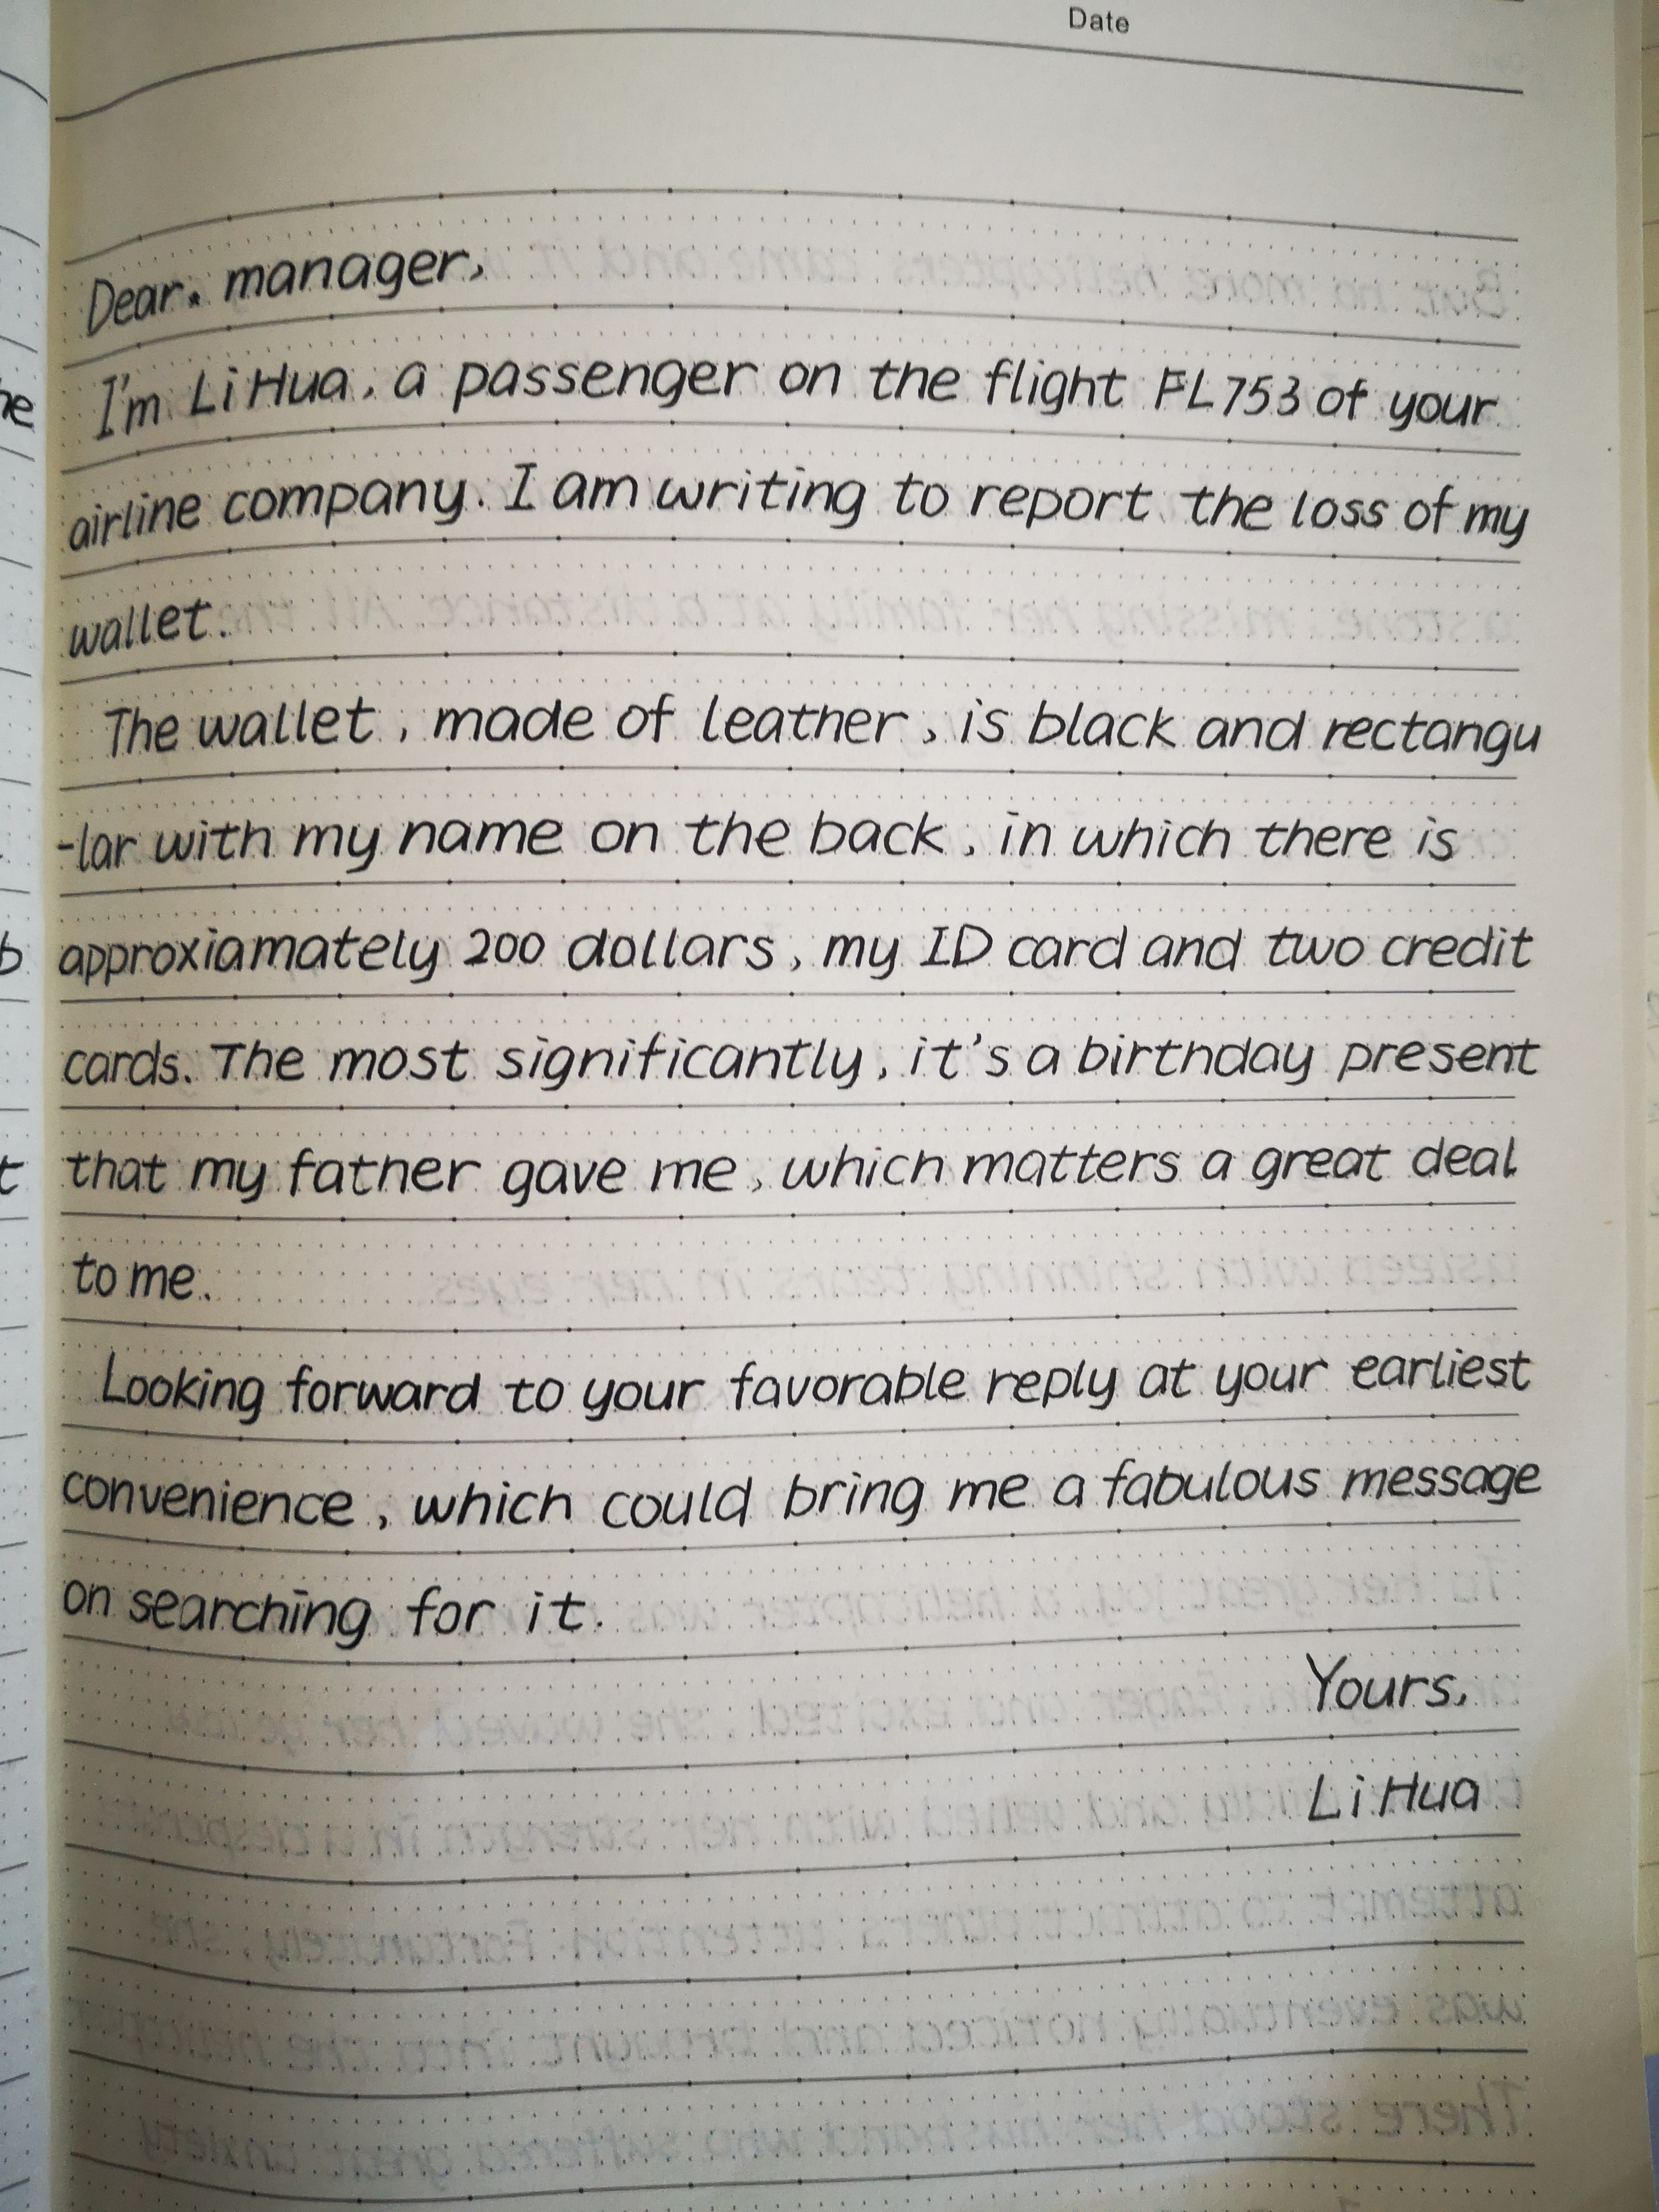 Date
Dear. manager,
I'm Li Hua, a passenger on the flight FL753 of your
airline company. I am writing to report the loss of my
wallet.
The wallet, made of leather, is black and rectangu
-lar with my name on the back, in which there is
approxiamately 200 dollars, my ID card and two credit
cards. The most significantly, it's a birthday present
that my father gave me, which matters a great deal
to me.
Looking forward to your favorable reply at your earliest
convenience, which could bring me a fabulous message
on searching for it.
Yours,
Li Hua